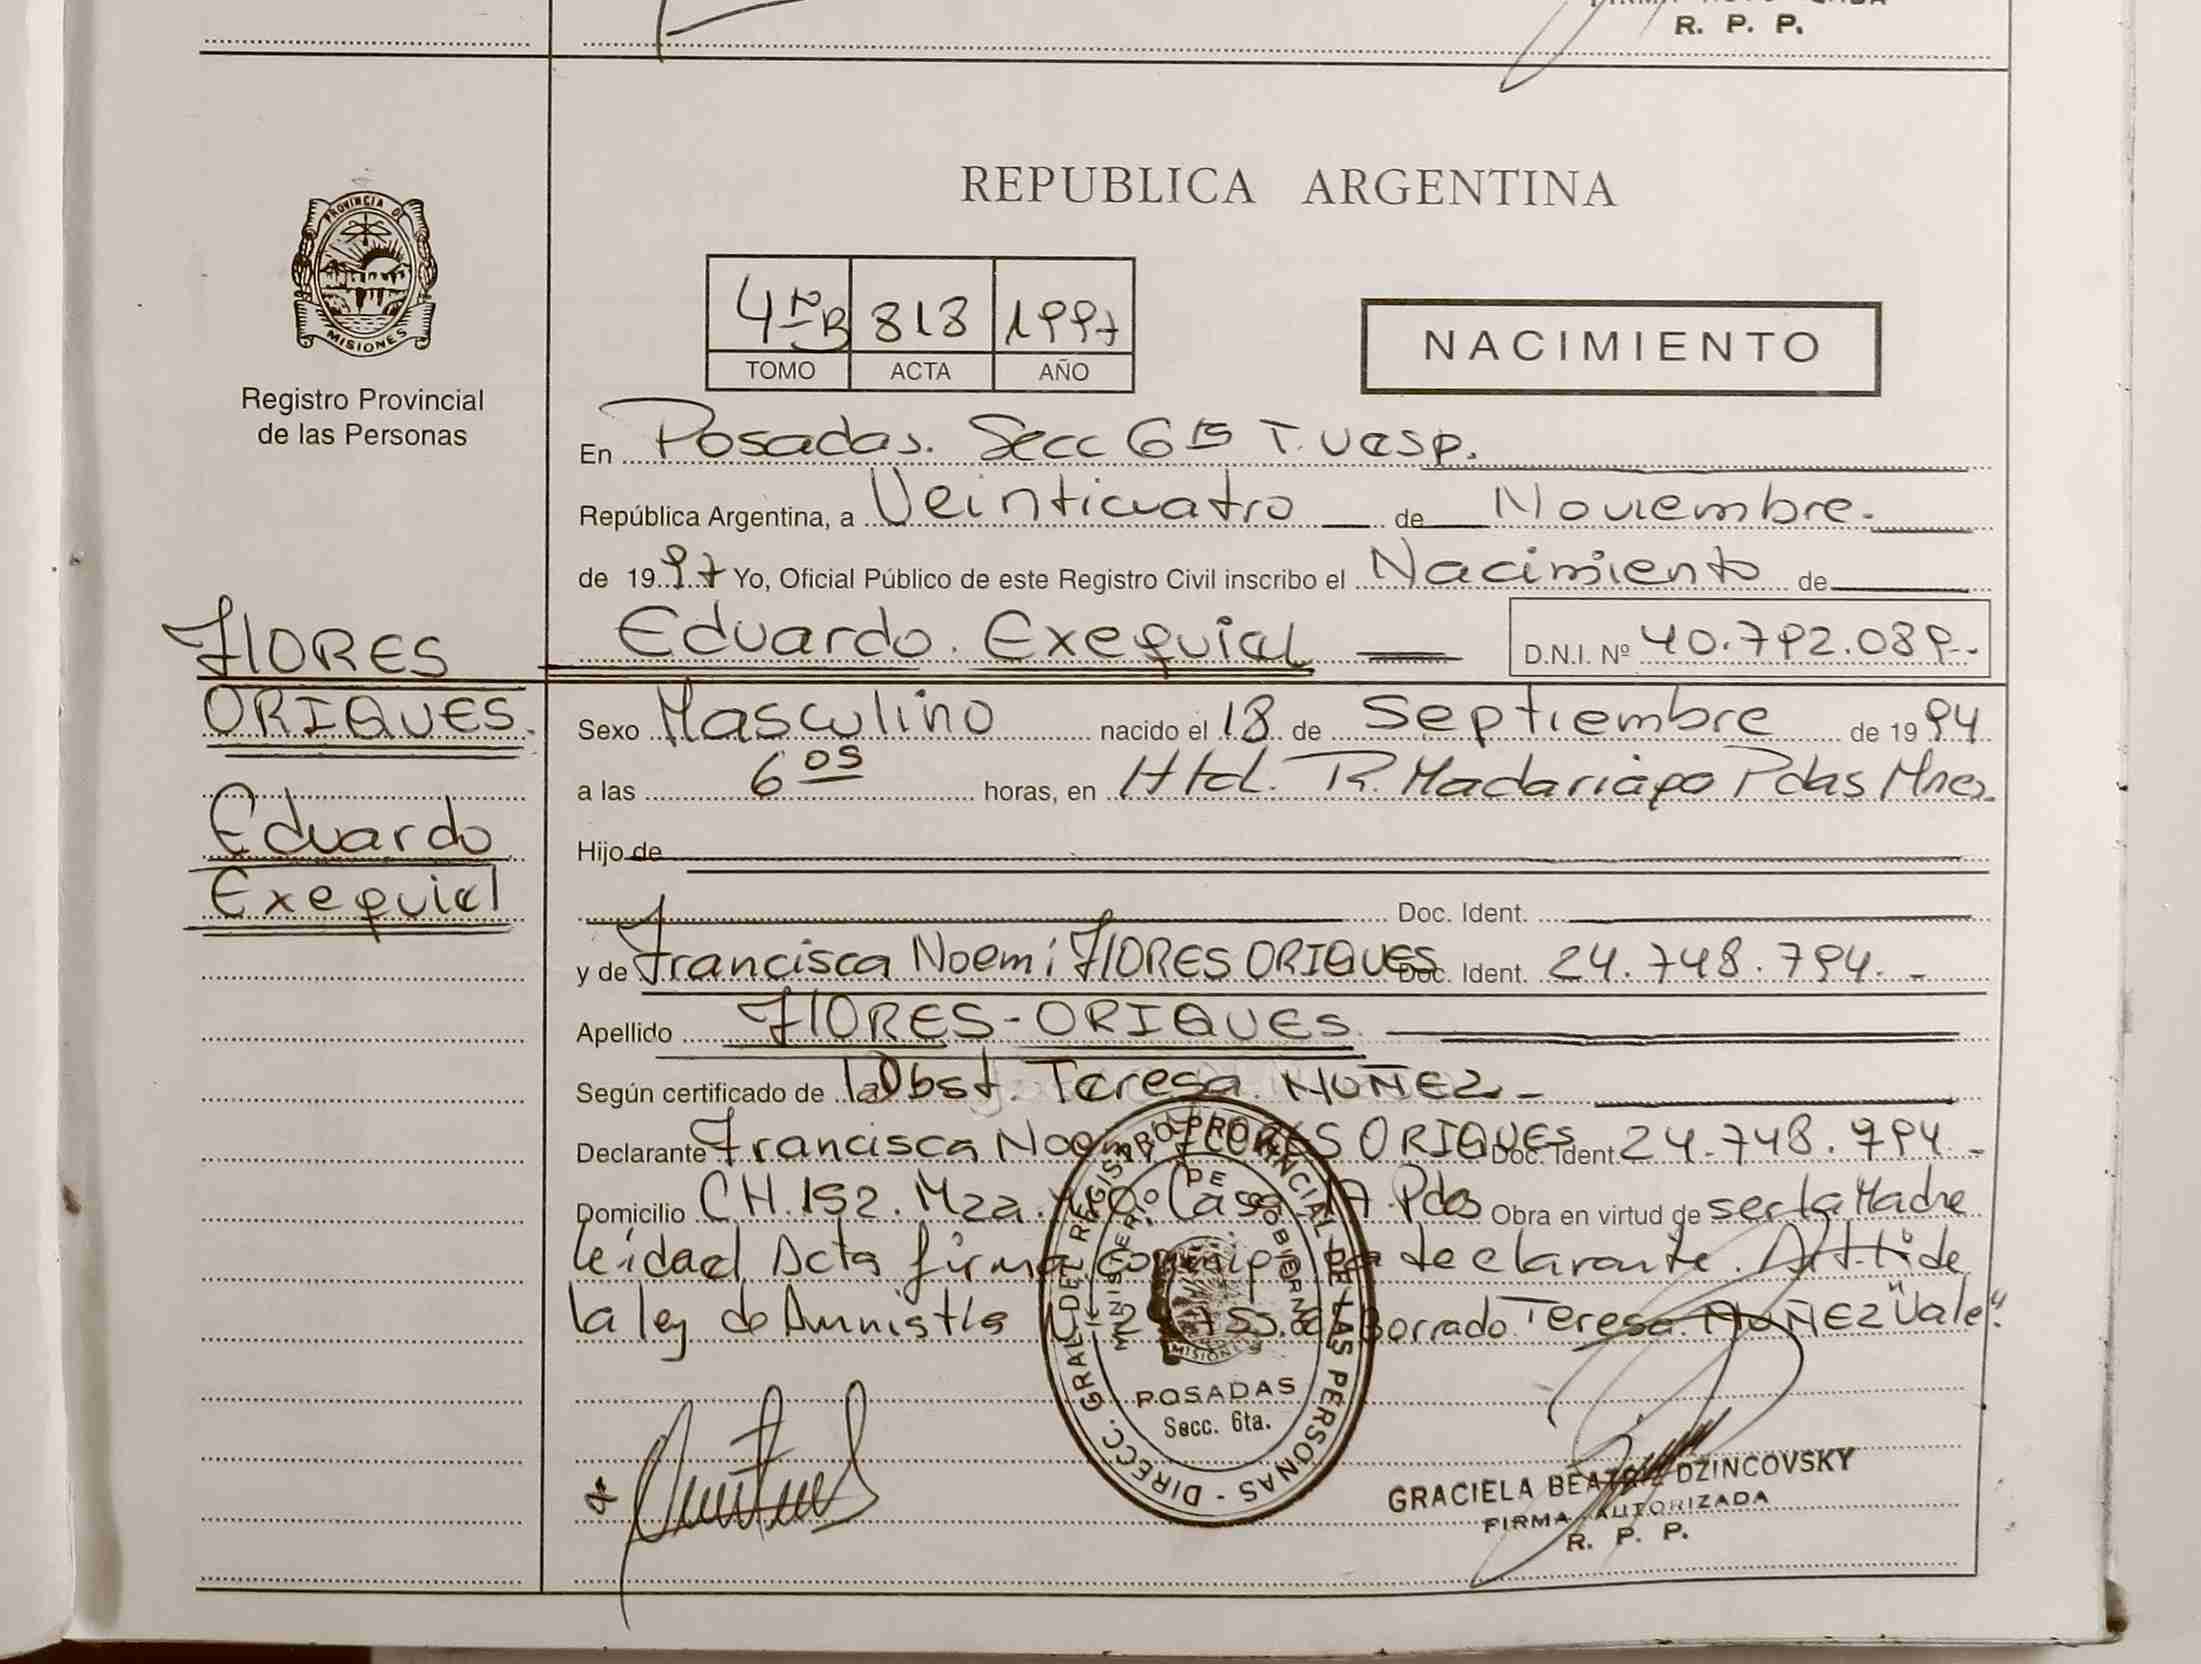 R. P. P.
PROVINCIA DE
MISIONES
Registro Provincial
de las Personas
FLORES
ORIQUES.
Eduardo
Exequiel
REPUBLICA ARGENTINA
4ToB 818 1997
TOMO ACTA AÑO
NACIMIENTO
En Posadas. Secc 6ta T. Vesp.
República Argentina, a Veinticuatro de Noviembre.
de 1997 Yo, Oficial Público de este Registro Civil inscribo el Nacimiento de
Eduardo. Exequiel D.N.I. Nº 40.792.089.-
Sexo Masculino nacido el 18 de Septiembre de 1994
a las 6 05 horas, en Htal. R. Madariaga Pdas Mnes.
Hijo de
Doc. Ident.
y de Francisca Noemi FLORES ORIQUES Doc. Ident. 24.748.794.-
Apellido FLORES-ORIQUES.
Según certificado de la Obst. Teresa. NUÑEZ-
Declarante Francisca Noemi FLORES ORIQUES Doc. Ident. 24.748.794.-
Domicilio CH. 152. Mza. Casa Pdas Obra en virtud de ser la Madre
leidad Acta firma conmigo la declarante. Art. 1 de
la ley de Amnistia Borrado. Teresa. NUÑEZ "Vale".
DIRECC. GRAL DEL REGISTRO PROVINCIAL DE LAS PERSONAS -
MINISTERIO DE GOBIERNO
MISIONES
POSADAS
Secc. 6ta.
GRACIELA BEATRIZ DZINCOVSKY
FIRMA AUTORIZADA
R. P. P.